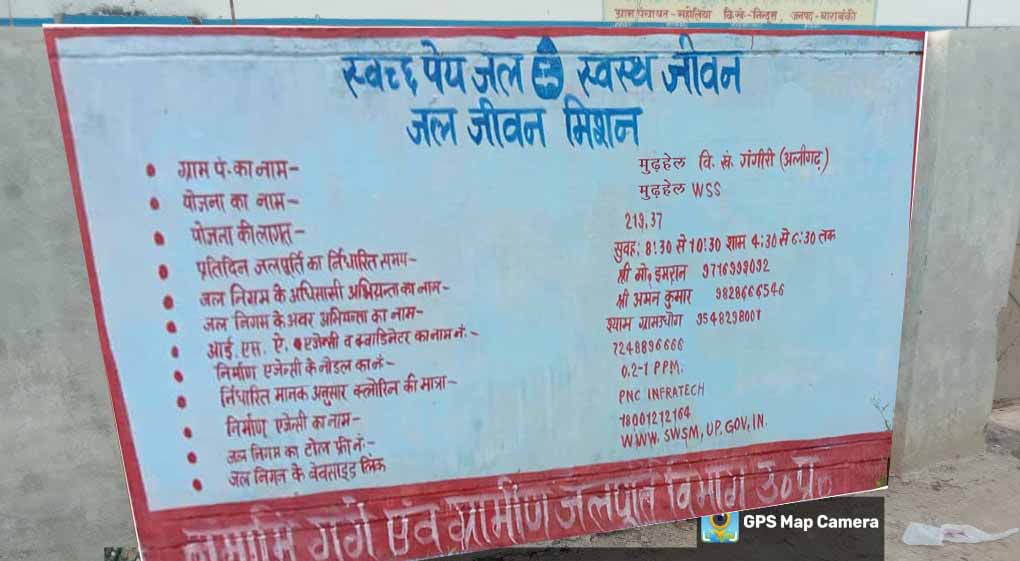 ग्राम पंचायत-महोलिया वि.खं.-निन्दूरा, जनपद-बाराबंकी
स्वच्छ पेय जल स्वस्थ जीवन
जल जीवन मिशन
• ग्राम पं. का नाम- मुढ़हेल वि. खं. गंगीरी (अलीगढ़)
• योजना का नाम- मुढ़हेल WSS
• योजना की लागत- 213,37
• प्रतिदिन जलपूर्ति का निर्धारित समय- सुवह: 8:30 से 10:30 शाम 4:30 से 6:30 तक
• जल निगम के अधिसासी अभियन्ता का नाम- श्री मो. इमरान 9716999092
• जल निगम के अवर अभियन्ता का नाम- श्री अमन कुमार 9828666546
• आई. एस. ऐ. एजेन्सी व क्वाडिनेटर का नाम नं.- श्याम ग्रामउधोग 9548298001
• निर्माण एजेन्सी के नोडल का नं- 7248896666
• र्निधारित मानक अनुसार क्लोरिन की मात्रा- 0.2-1 PPM.
• निर्माण एजेन्सी का नाम- PNC INFRATECH
• जल निगम का टोल फ्री नं- 18001212164
• जल निगम के वेवसाइड लिंक WWW. SWSM, UP. GOV, IN.
नमामि गंगे एवं ग्रामीण जलपूर्ति विभाग उ०प्र०
GPS Map Camera